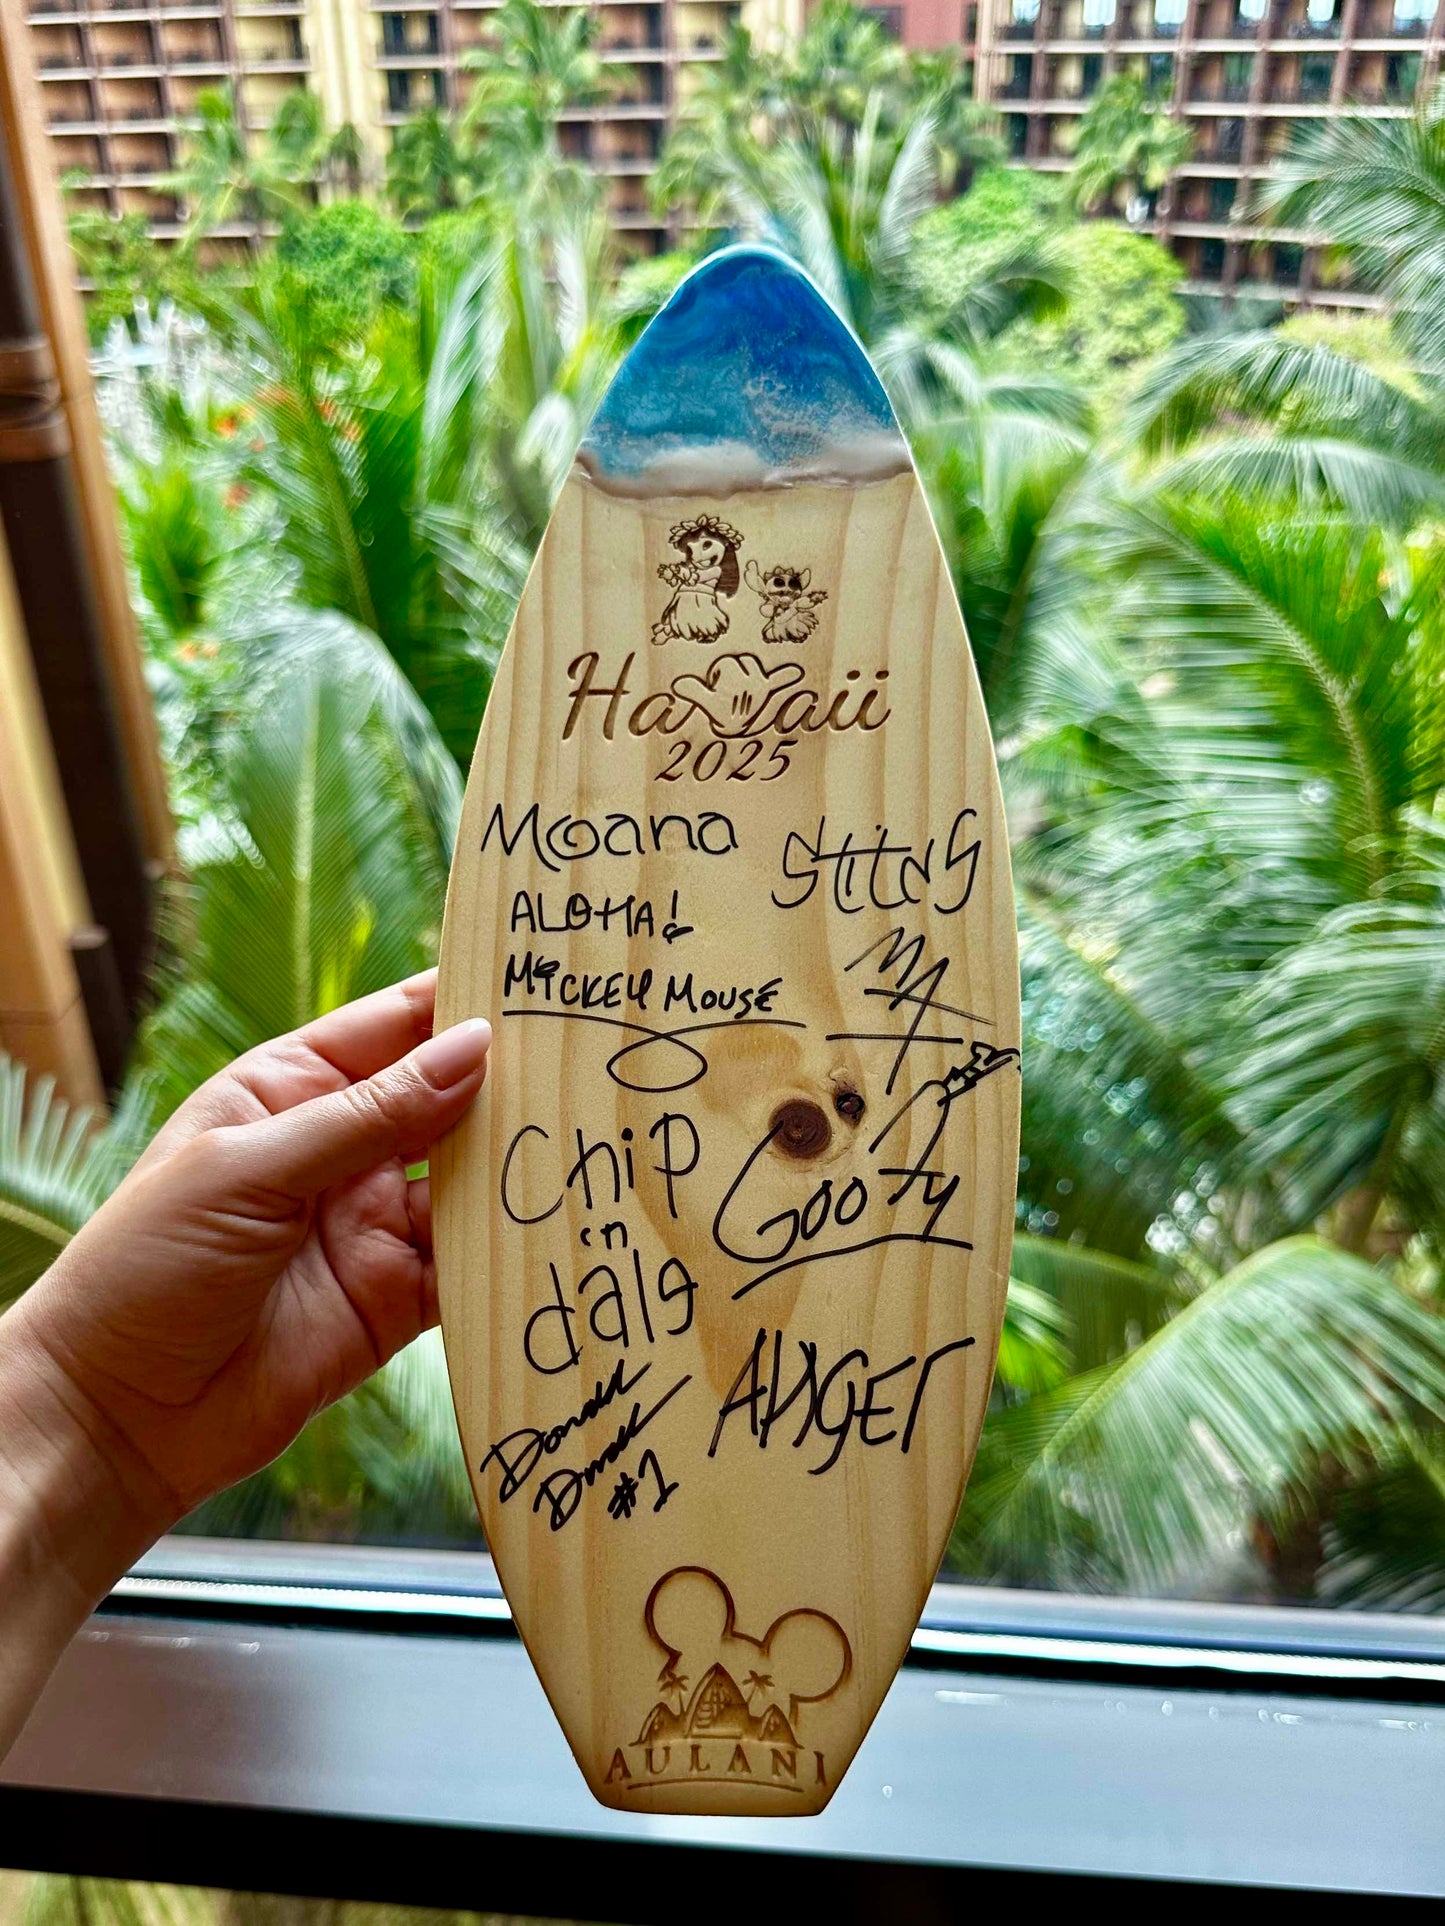 Hawaii
2025
Moana
Stitch
ALOHA!
MICKEY MOUSE
MAX
Chip
'n
dale
Goofy
Donald
Duck
#1
AULANI